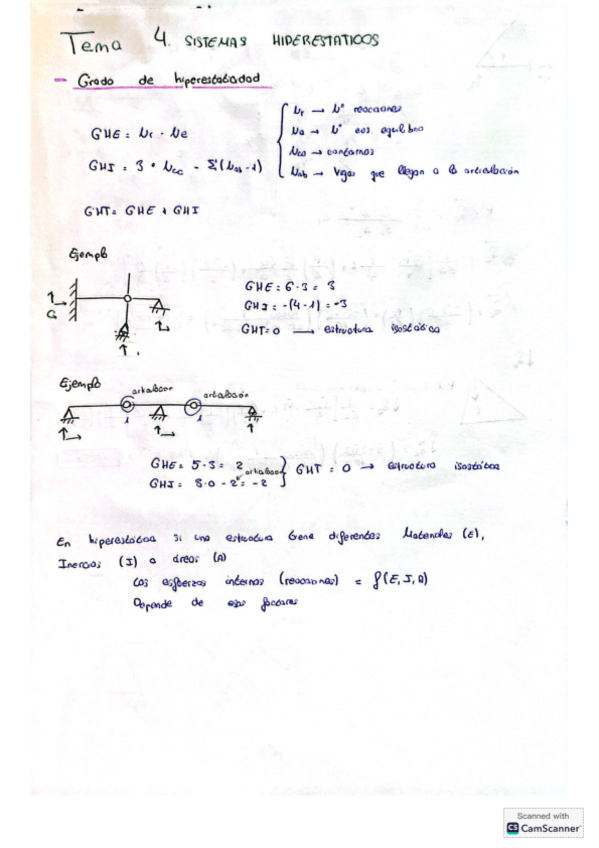 Tema 4. SISTEMAS HIPERESTATICOS
- Grado de hiperestabadad
GHE = Nr - Ne
GHI = 3 · Ncc - Σ(Nab - 1)
Nr → Nº reacciones
Ne → Nº ecs. equilibrio
Ncc → contornos
Nab → Vigas que llegan a la articulación
GHT = GHE + GHI
Ejemplo
GHE = 6 - 3 = 3
GHI = -(4 - 1) = -3
GHT = 0 → estructura isostática
Ejemplo
articulación articulación
1 1
GHE = 5 - 3 = 2
GHI = 3·0 - 2 = -2
articulación
GHT = 0 → estructura isostática
En hiperestática si una estructura tiene diferentes Materiales (E),
Inercias (I) o áreas (A)
Los esfuerzos internos (reacciones) = f(E, I, A)
Depende de esos factores
Scanned with
CS CamScanner